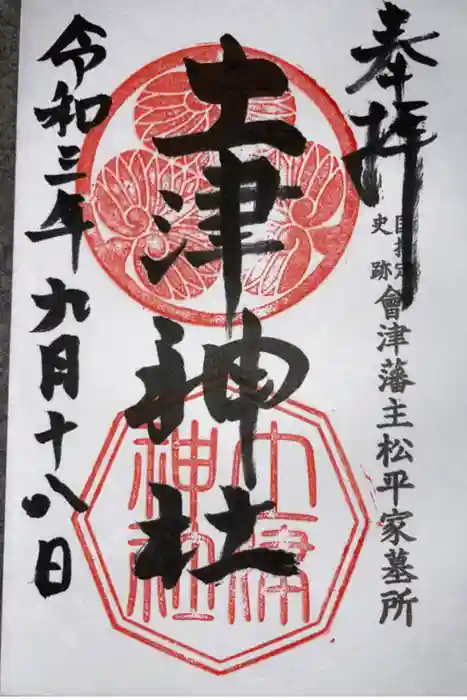 奉拝
国指定
史跡
會津藩主松平家墓所
土津神社
土津
神社
令和三年九月十八日